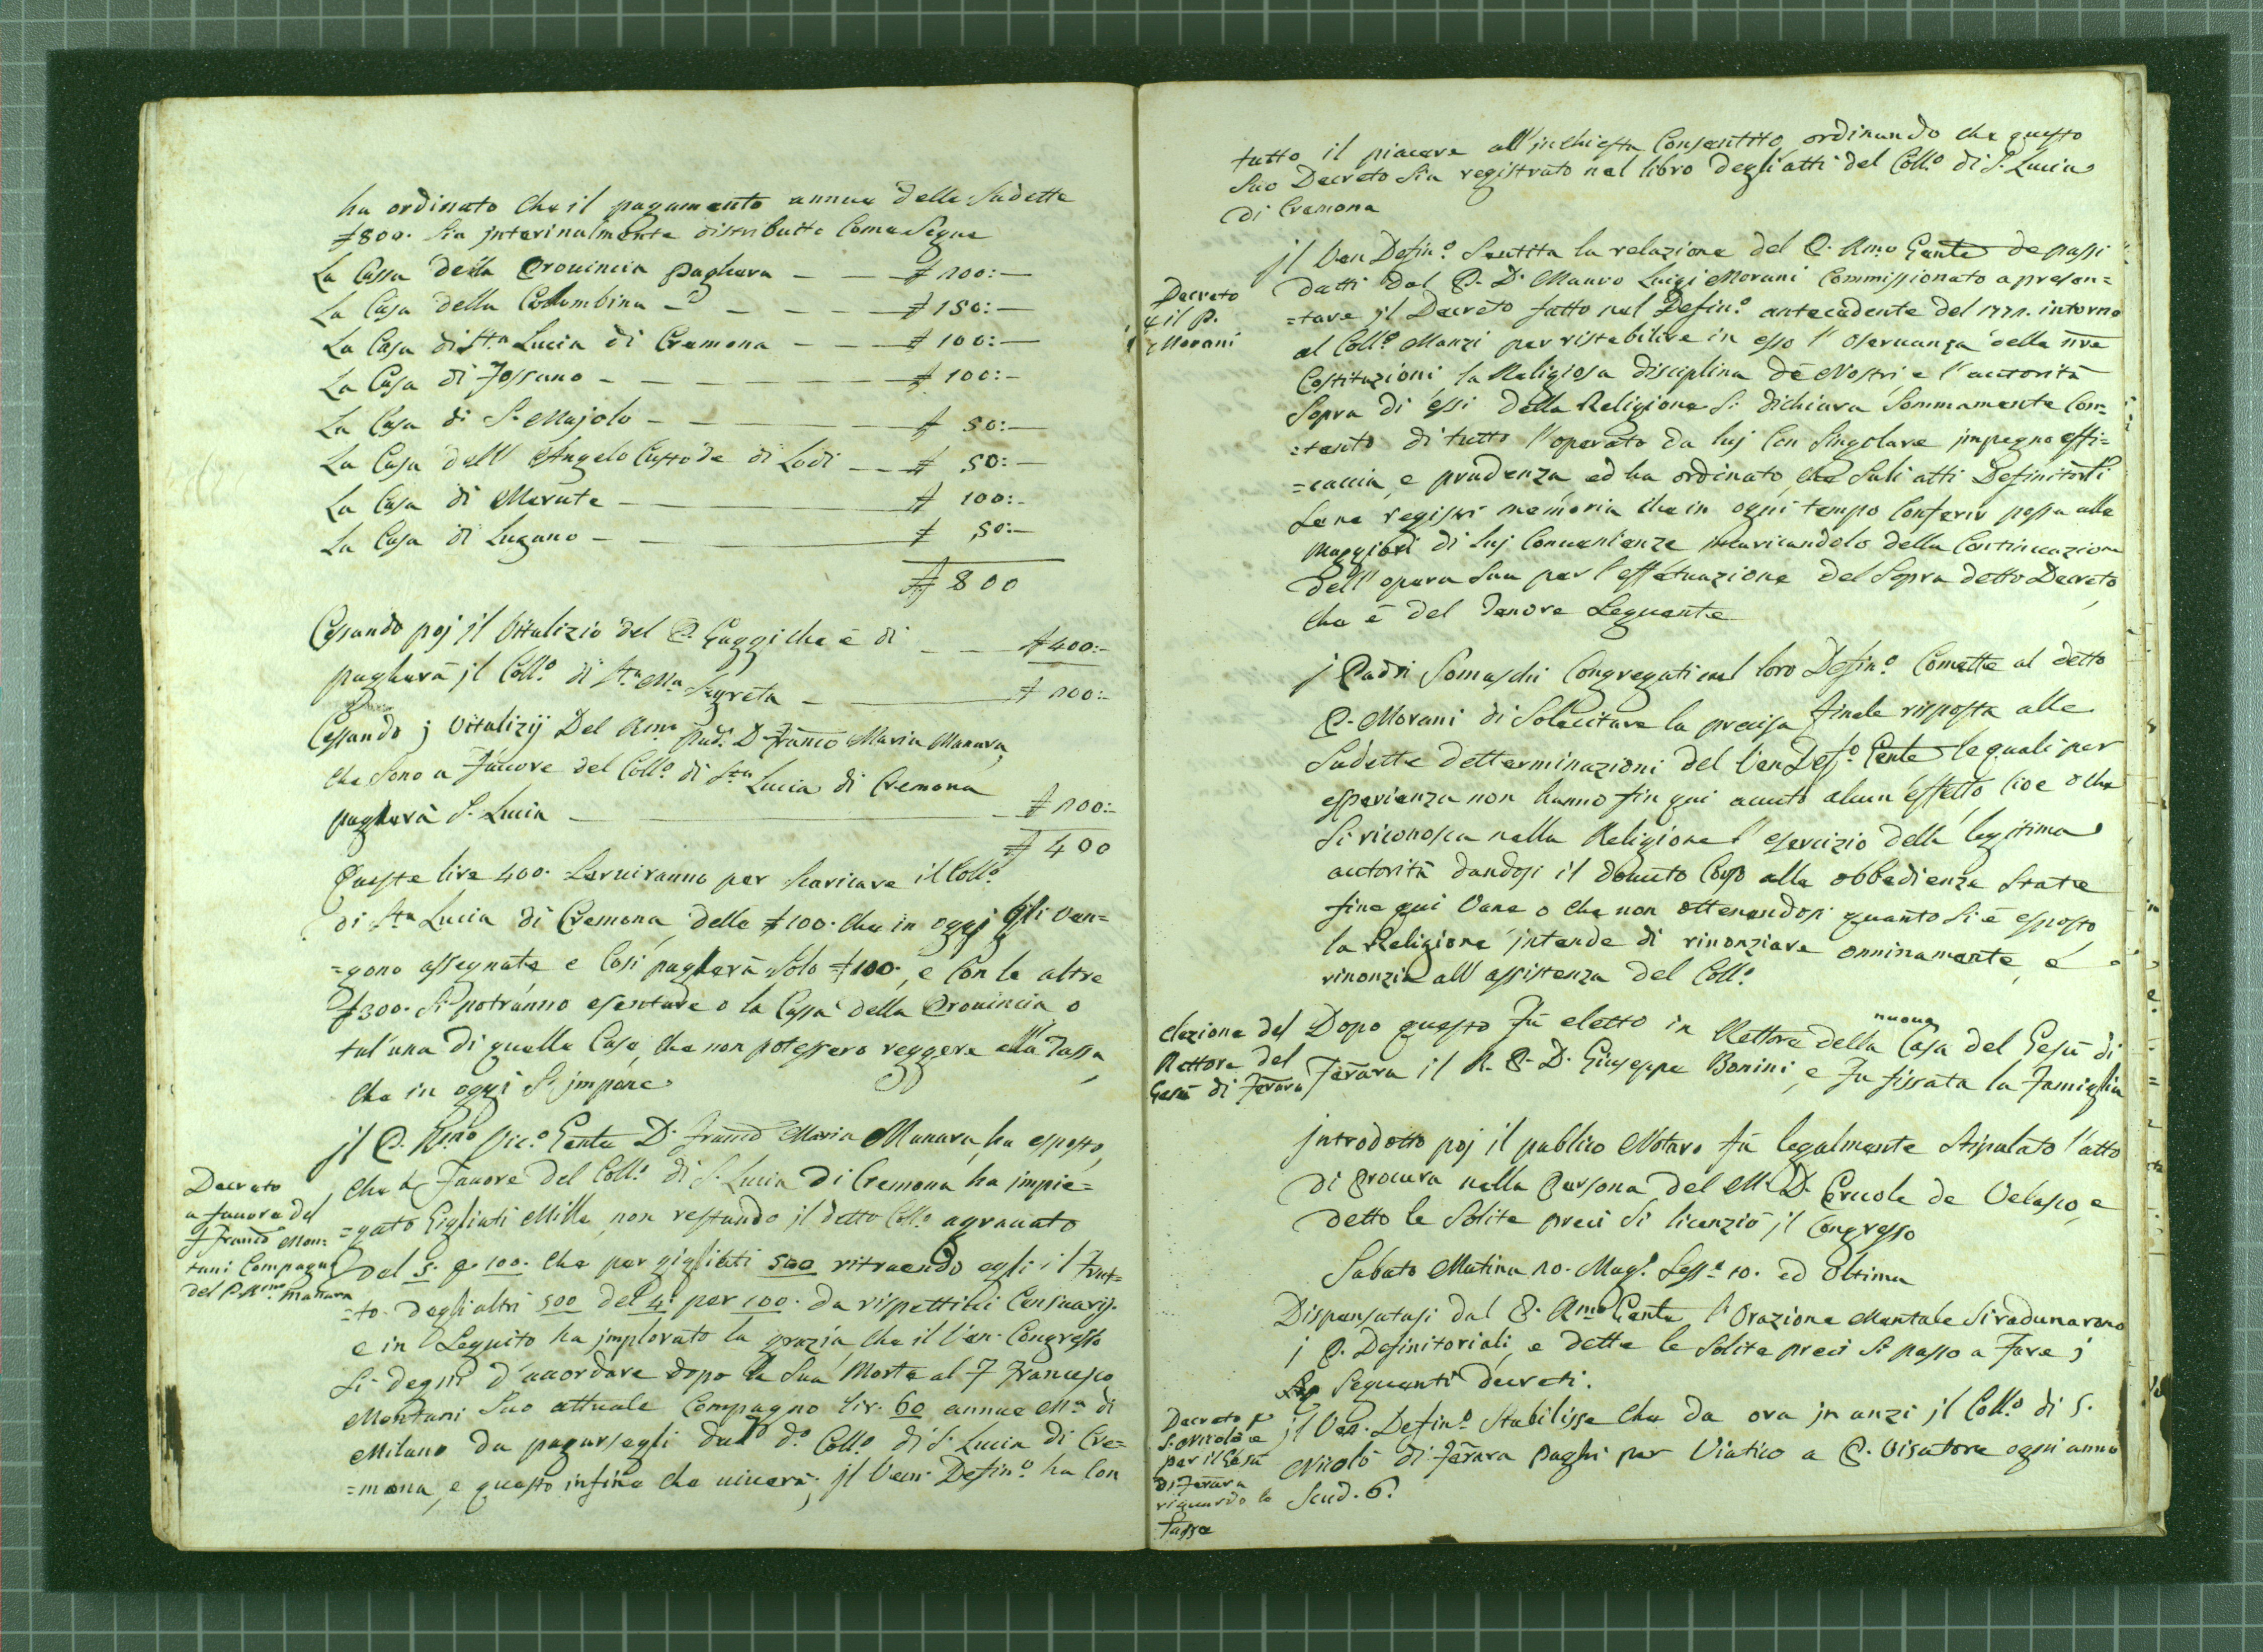 ha ordinato che il pagamento annuo delle sudette
ƚ 800. sia jnterinalmente distribuitto Come Segue
La Cassa della Provincia pagherà — — ƚ 200:—
La Casa della Colombina — — — — ƚ 150:—
La Casa di Sta Lucia di Cremona — — — ƚ 100:—
La Casa di Fossano — — — — ƚ 100:—
La Casa di S. Majolo — — — ƚ 50:—
La Casa dell' Angelo Custode di Lodi — — ƚ 50:—
La Casa di Merate — — ƚ 100:—
La Casa di Lugano — — ƚ 50:—
ƚ 800
Cessando poj jl Vitalizio del P. Gaggi che è di — — ƚ 400:—
pagherà jl Collo di Sta Ma Segreta — — ƚ 200:—
Cessando j Vitalizij Del Rmo Pad. D Franco Maria Manara,
che sono a Favore del Collo di Sta Lucia di Cremona
pagherà S. Lucia — — ƚ 200:—
ƚ 400
Queste lire 400. Serviranno per scaricare il Collo
di Sta Lucia di Cremona delle ƚ 100. che in oggi gli ven=
=gono assegnate e Così pagherà Solo ƚ 100., e Con le altre
ƚ 300. Si potranno esentare o la Cassa della Provincia o
tal'una di quelle Case, che non potessero reggere alla Tassa,
che in oggi S'jmpone
jl P. Rmo Vico Gente D. Franco Maria Manara, ha esposto,
Decreto
a favore del
F Franco Mon:
tani Compagno
del P. Rmo Manara
che a Favore del Collo di S. Lucia di Cremona ha jmpie=
=gato Gigliati Mille, non restando jl detto Collo agravato
del 5. p 100. che per gigliati 500 ritraendo egli il frut=
=to degli altri 500 del 4. per 100. da rispettivi Censuarij.
e in Seguito ha jmplorato la grazia che il Ven. Congresso
Si degni d'accordare dopo la Sua Morte al F Francesco
Montani Suo attuale Compagno lir. 60 annue Ma di
Milano da pagarsegli dal do Collo di S. Lucia di Cre=
=mona, e questo infino che viverà; jl Ven. Defino ha Con
tutto il piacere all'jnchiesta Consentito, ordinando che questo
Suo Decreto Sia registrato nel libro degli atti del Collo di S. Lucia
di Cremona
jl Ven Defino Sentita la relazione del P. Rmo Gente de passi
Decreto
p il P.
Morani
datti dal P. D. Mauro Luigi Morani Commissionato a presen=
=tare jl Decreto fatto nel Defino antecedente del 1771. intorno
al Collo Manzi per ristabilire in esso l'oservanza delle nre
Costituzioni, la Religiosa disciplina dè Nostri e l'autorità
Sopra di essi della Religione Si dichiara Sommamente Con=
=tento di tutto l'operato da luj Con Singolare jmpegno effi=
=caccia, e prudenza, ed ha ordinato, che Suli atti Definitorli
Se ne registri memoria che in ogni tempo Conferir possa alle
Maggiori di luj Convenienze jncaricandolo della Continuazione
dell'opera Sua per l'effetuazione del Sopra detto Decreto,
che è del Tenore Seguente
j Padri Somaschi Congregati nel loro Defino Comette al detto
P. Morani di Solecitare la precisa finale risposta alle
Sudette detterminazioni del Ven Defo Gente le quali per
esperienza non hanno fin qui avuto alcun effetto cioe o che
Si riconosca nella Religione l'esercizio della legitima
autorità dandosi il dovuto Corso alle obbedienze State
fine qui Vane o che non ottenendosi quanto Si è esposto,
la Religione jntende di rinonziare onninamente, e
rinonzia all'assistenza del Collo
elezione del
Rettore del
Gesù di Ferara
Dopo questo Fù eletto in Rettore della nuova Casa del Gesù di
Ferara il R. P. D. Giuseppe Bonini, e Fu fissata la Famiglia
jntrodotto poj il publico Notaro fu legalmente Stipulato l'atto
di Procura nella Persona del Mr. D. Ercole de Velasco, e
detto le Solite preci Si licenziò jl Congresso
Sabato Matina 10. Mago Sessa 10. ed Ultima
Dispensatasi dal P. Rmo Gente l'Orazione Mentale Si radunarono
j P. Definitoriali, e dette le Solite preci Si passo a Fare j
Seguenti decreti.
Decreto p
S. Nicolò e
per il Gesù
di Ferara
riguardo le
Tasse
jl Ven. Defino Stabilisse che da ora jnanzi jl Collo di S.
Nicolò di Ferara Paghi per Viatico a P. Visatore ogni anno
Scud. 6.